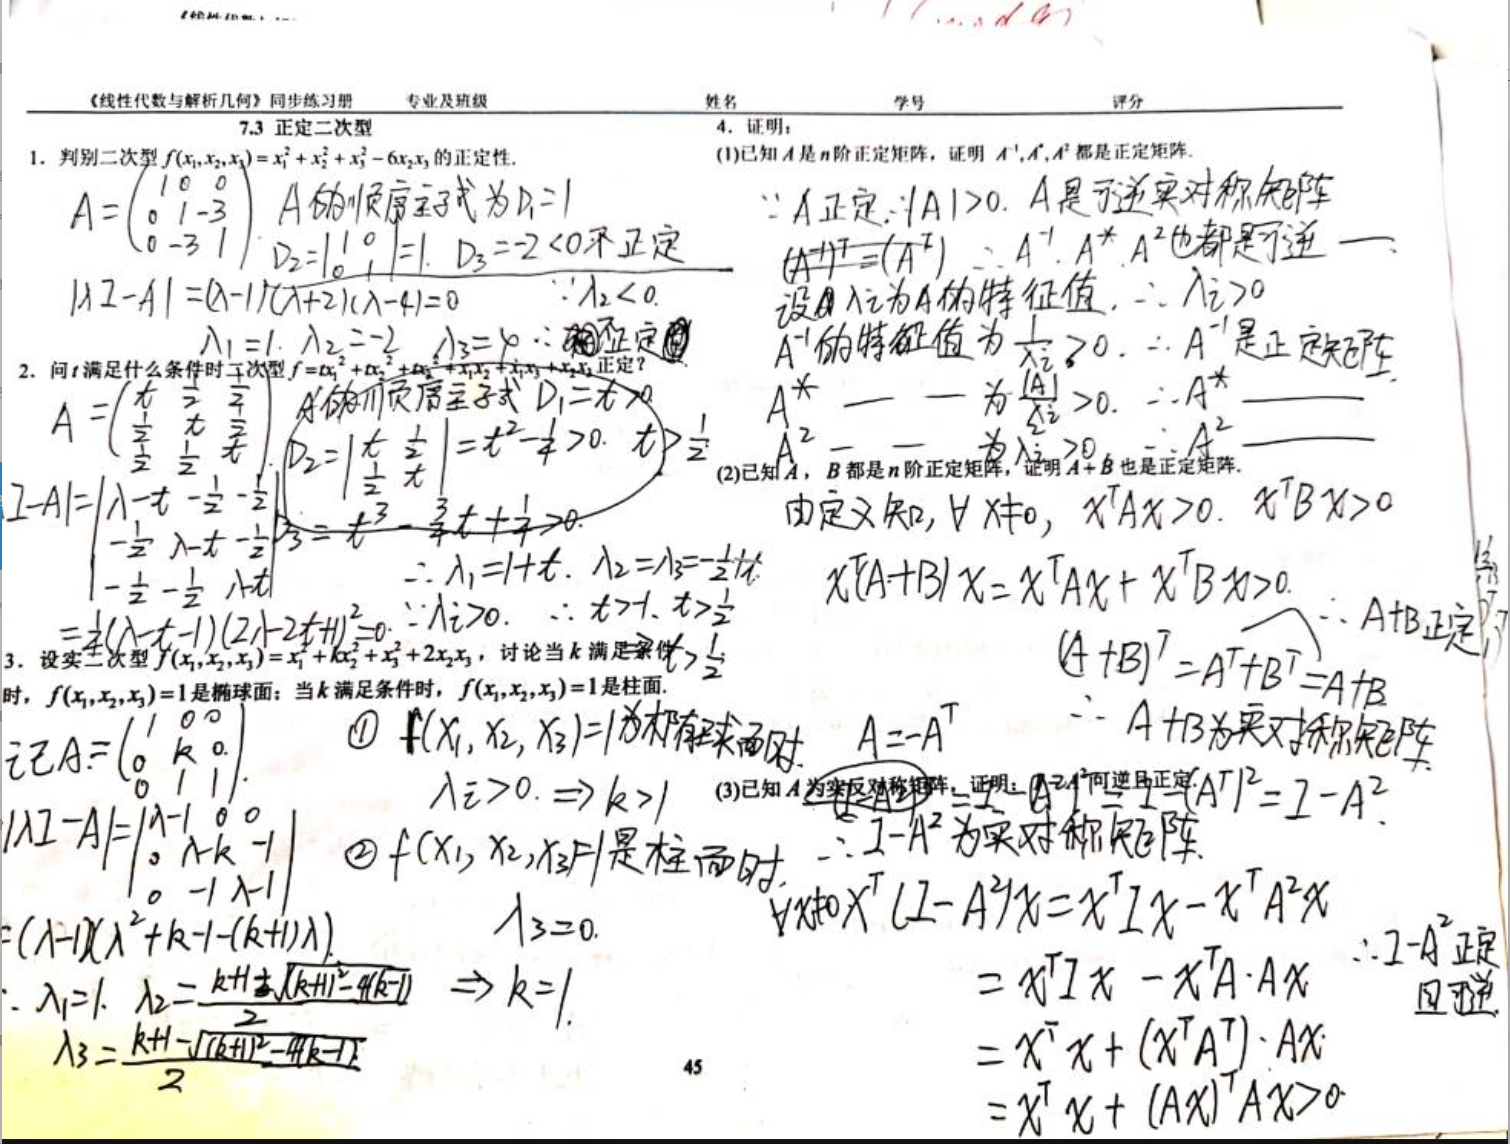 《线性代数与解析几何》同步练习册 专业及班级 姓名 学号 评分
7.3 正定二次型
1. 判别二次型 f(x₁,x₂,x₃)=x₁²+x₂²+x₃²-6x₂x₃ 的正定性.
A=(1 0 0
0 1 -3
0 -3 1)
A的顺序主子式为D₁=1
D₂=|1 0
0 1|=1. D₃=-2<0不正定
|λI-A|=(λ-1)(λ+2)(λ-4)=0 ∵λ₂<0.
λ₁=1. λ₂=-2 λ₃=4 ∴不正定
2. 问 t 满足什么条件时二次型 f=tx₁²+tx₂²+tx₃²+x₁x₂+x₁x₃+x₂x₃ 正定?
A=(t 1/2 1/2
1/2 t 1/2
1/2 1/2 t)
A的顺序主子式 D₁=t>0
D₂=|t 1/2
1/2 t|=t²-1/4>0. t>1/2
D₃=t³-3/4t+1/4>0.
I-A|=|λ-t -1/2 -1/2
-1/2 λ-t -1/2
-1/2 -1/2 λ-t|
=1/4(λ-t-1)(2λ-2t+1)²=0.
∴λ₁=1+t. λ₂=λ₃=-1/2+t.
∵λi>0. ∴t>-1. t>1/2
⇒t>1/2
3. 设实二次型 f(x₁,x₂,x₃)=x₁²+kx₂²+x₃²+2x₂x₃, 讨论当 k 满足条件
时, f(x₁,x₂,x₃)=1是椭球面; 当 k 满足条件时, f(x₁,x₂,x₃)=1是柱面.
记A=(1 0 0
0 k 0
0 1 1)
|λI-A|=|λ-1 0 0
0 λ-k -1
0 -1 λ-1|
=(λ-1)(λ²+k-1-(k+1)λ)
∴λ₁=1. λ₂=(k+1+√((k+1)²-4(k-1)))/2
λ₃=(k+1-√((k+1)²-4(k-1)))/2
① f(x₁,x₂,x₃)=1为椭球面时.
λi>0. ⇒k>1
② f(x₁,x₂,x₃)=1是柱面时.
λ₃=0.
⇒k=1.
4. 证明:
(1)已知 A 是 n 阶正定矩阵, 证明 A⁻¹,A*,A² 都是正定矩阵.
∵A正定∴|A|>0. A是可逆实对称矩阵
(A⁻¹)ᵀ=(Aᵀ) ∴A⁻¹. A* A²也都是可逆——.
设λi为A的特征值. ∴λi>0
A⁻¹的特征值为1/λi>0. ∴A⁻¹是正定矩阵.
A*——为|A|/λi>0. ∴A*——
A²——为λi²>0. ∴A²——
(2)已知 A, B 都是 n 阶正定矩阵, 证明 A+B 也是正定矩阵.
由定义知, ∀x≠0, xᵀAx>0. xᵀBx>0
xᵀ(A+B)x=xᵀAx+xᵀBx>0.
∴A+B正定
(A+B)ᵀ=Aᵀ+Bᵀ=A+B
∴A+B为实对称矩阵.
A=-Aᵀ
(3)已知 A 为实反对称矩阵, 证明: I-A² 可逆且正定.
=I-(Aᵀ)²=I-A².
∴I-A²为实对称矩阵.
∀x≠0 xᵀ(I-A²)x=xᵀIx-xᵀA²x
=xᵀIx-xᵀA·Ax
=xᵀx+(xᵀAᵀ)·Ax.
=xᵀx+(Ax)ᵀAx>0.
∴I-A²正定
且可逆.
45